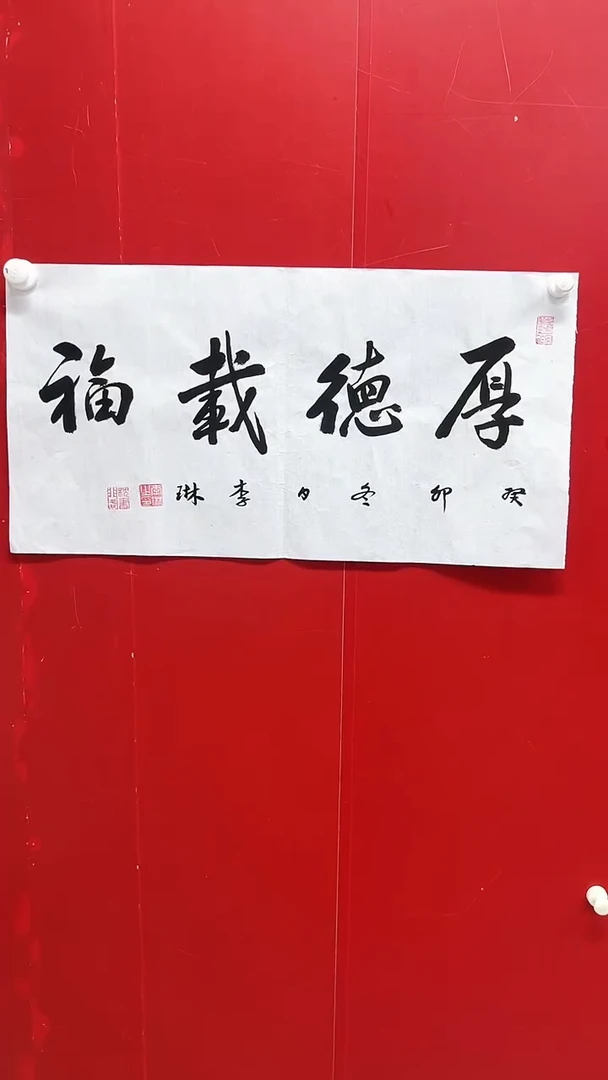 厚德載福
癸卯冬月李琳